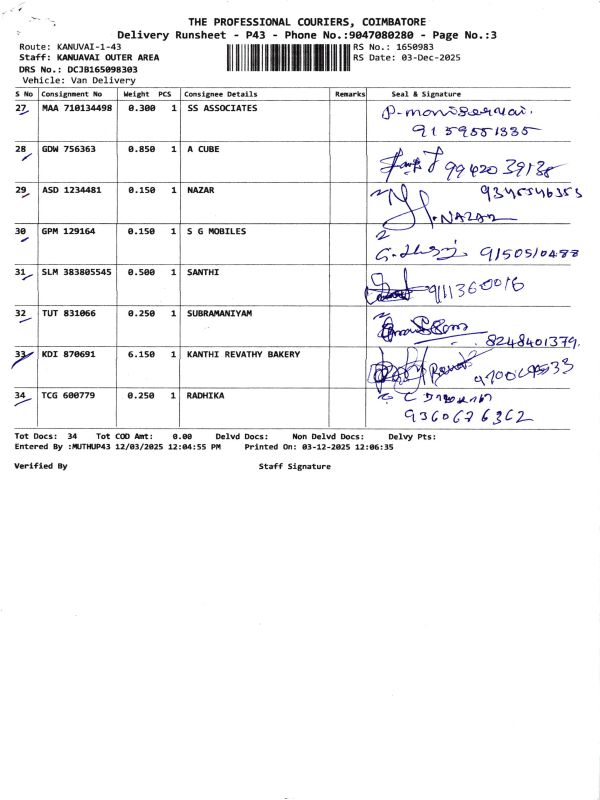 THE PROFESSIONAL COURIERS, COIMBATORE
Delivery Runsheet - P43 - Phone No.:9047080280 - Page No.:3
Route: KANUVAI-1-43 RS No.: 1650983
Staff: KANUAVAI OUTER AREA RS Date: 03-Dec-2025
DRS No.: DCJB165098303
Vehicle: Van Delivery
S No Consignment No Weight PCS Consignee Details Remarks Seal & Signature
27 MAA 710134498 0.300 1 SS ASSOCIATES
9159551335
28 GDW 756363 0.850 1 A CUBE
9942039138
29 ASD 1234481 0.150 1 NAZAR 9345546353
NAZAR
30 GPM 129164 0.150 1 S G MOBILES
9150510488
31 SLM 383805545 0.500 1 SANTHI 9111360016
32 TUT 831066 0.250 1 SUBRAMANIYAM
8248401379.
33 KDI 870691 6.150 1 KANTHI REVATHY BAKERY
34 TCG 600779 0.250 1 RADHIKA
9360676362
Tot Docs: 34 Tot COD Amt: 0.00 Delvd Docs: Non Delvd Docs: Delvy Pts:
Entered By :MUTHUP43 12/03/2025 12:04:55 PM Printed On: 03-12-2025 12:06:35
Verified By Staff Signature